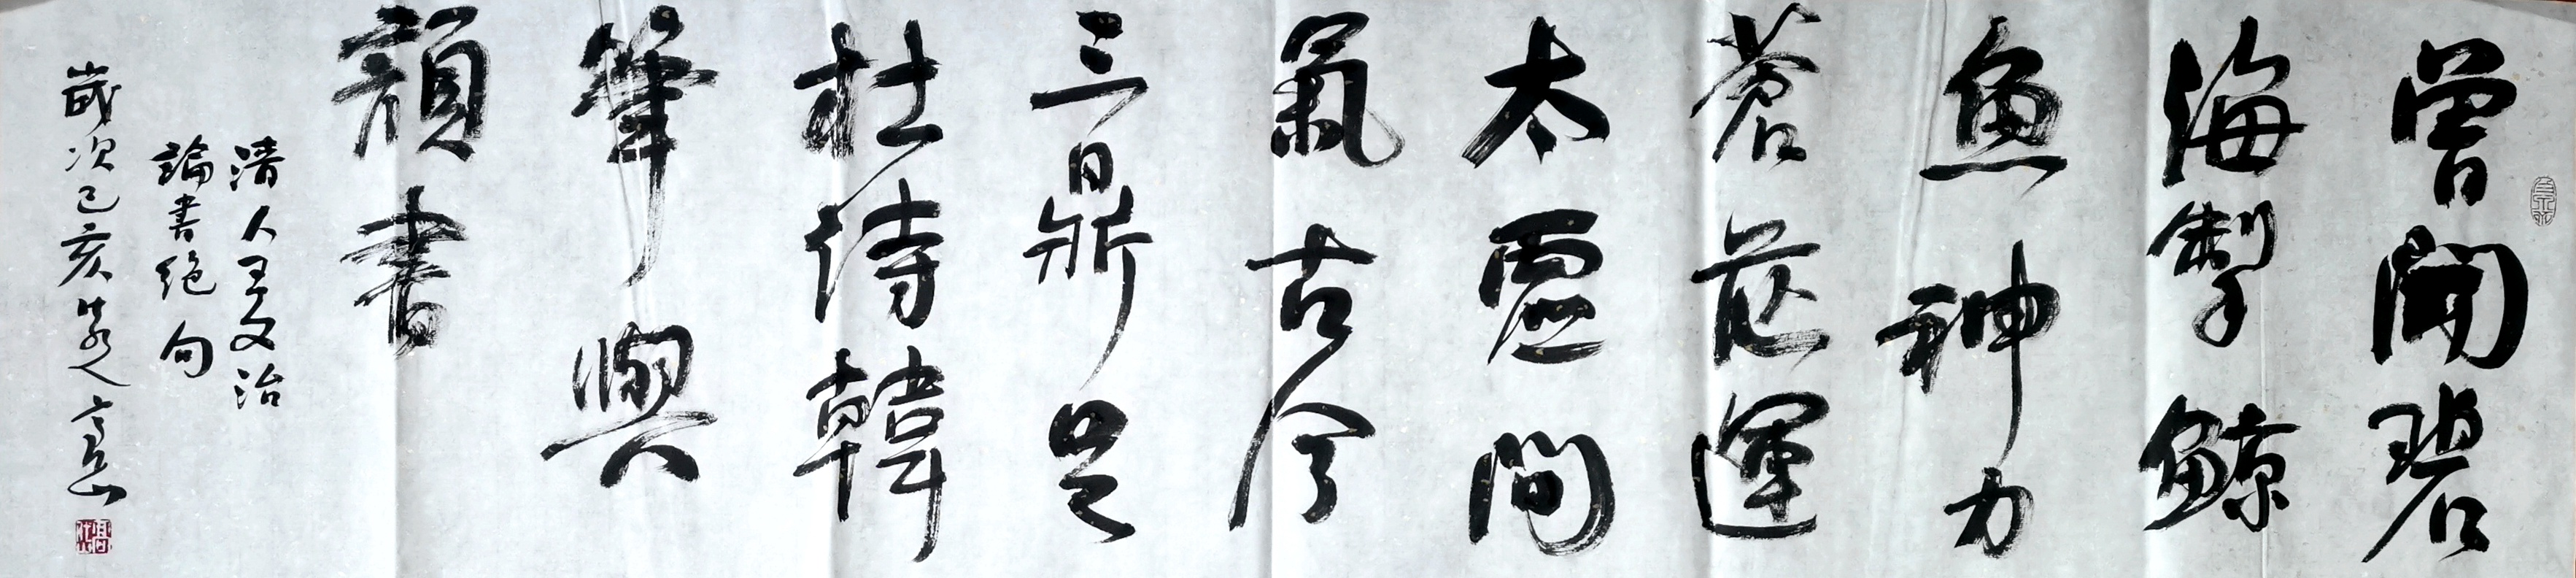 曾開碧
海掣鯨
魚神力
蒼茫運
太虛間
氣古今
三鼎足
杜詩韓
筆與
顔書
清人王文治
論書絶句
歲次己亥